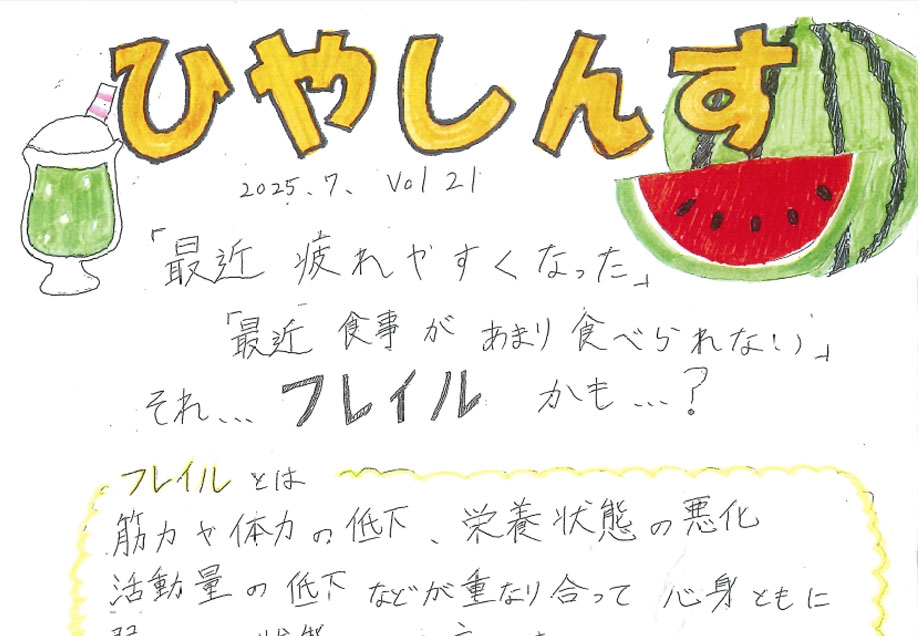 ひやしんす
2025.7. Vol 21
「最近 疲れやすくなった」
「最近 食事が あまり食べられない」
それ... フレイル かも...?
フレイルとは
筋力や体力の低下、栄養状態の悪化
活動量の低下などが重なり合って 心身ともに